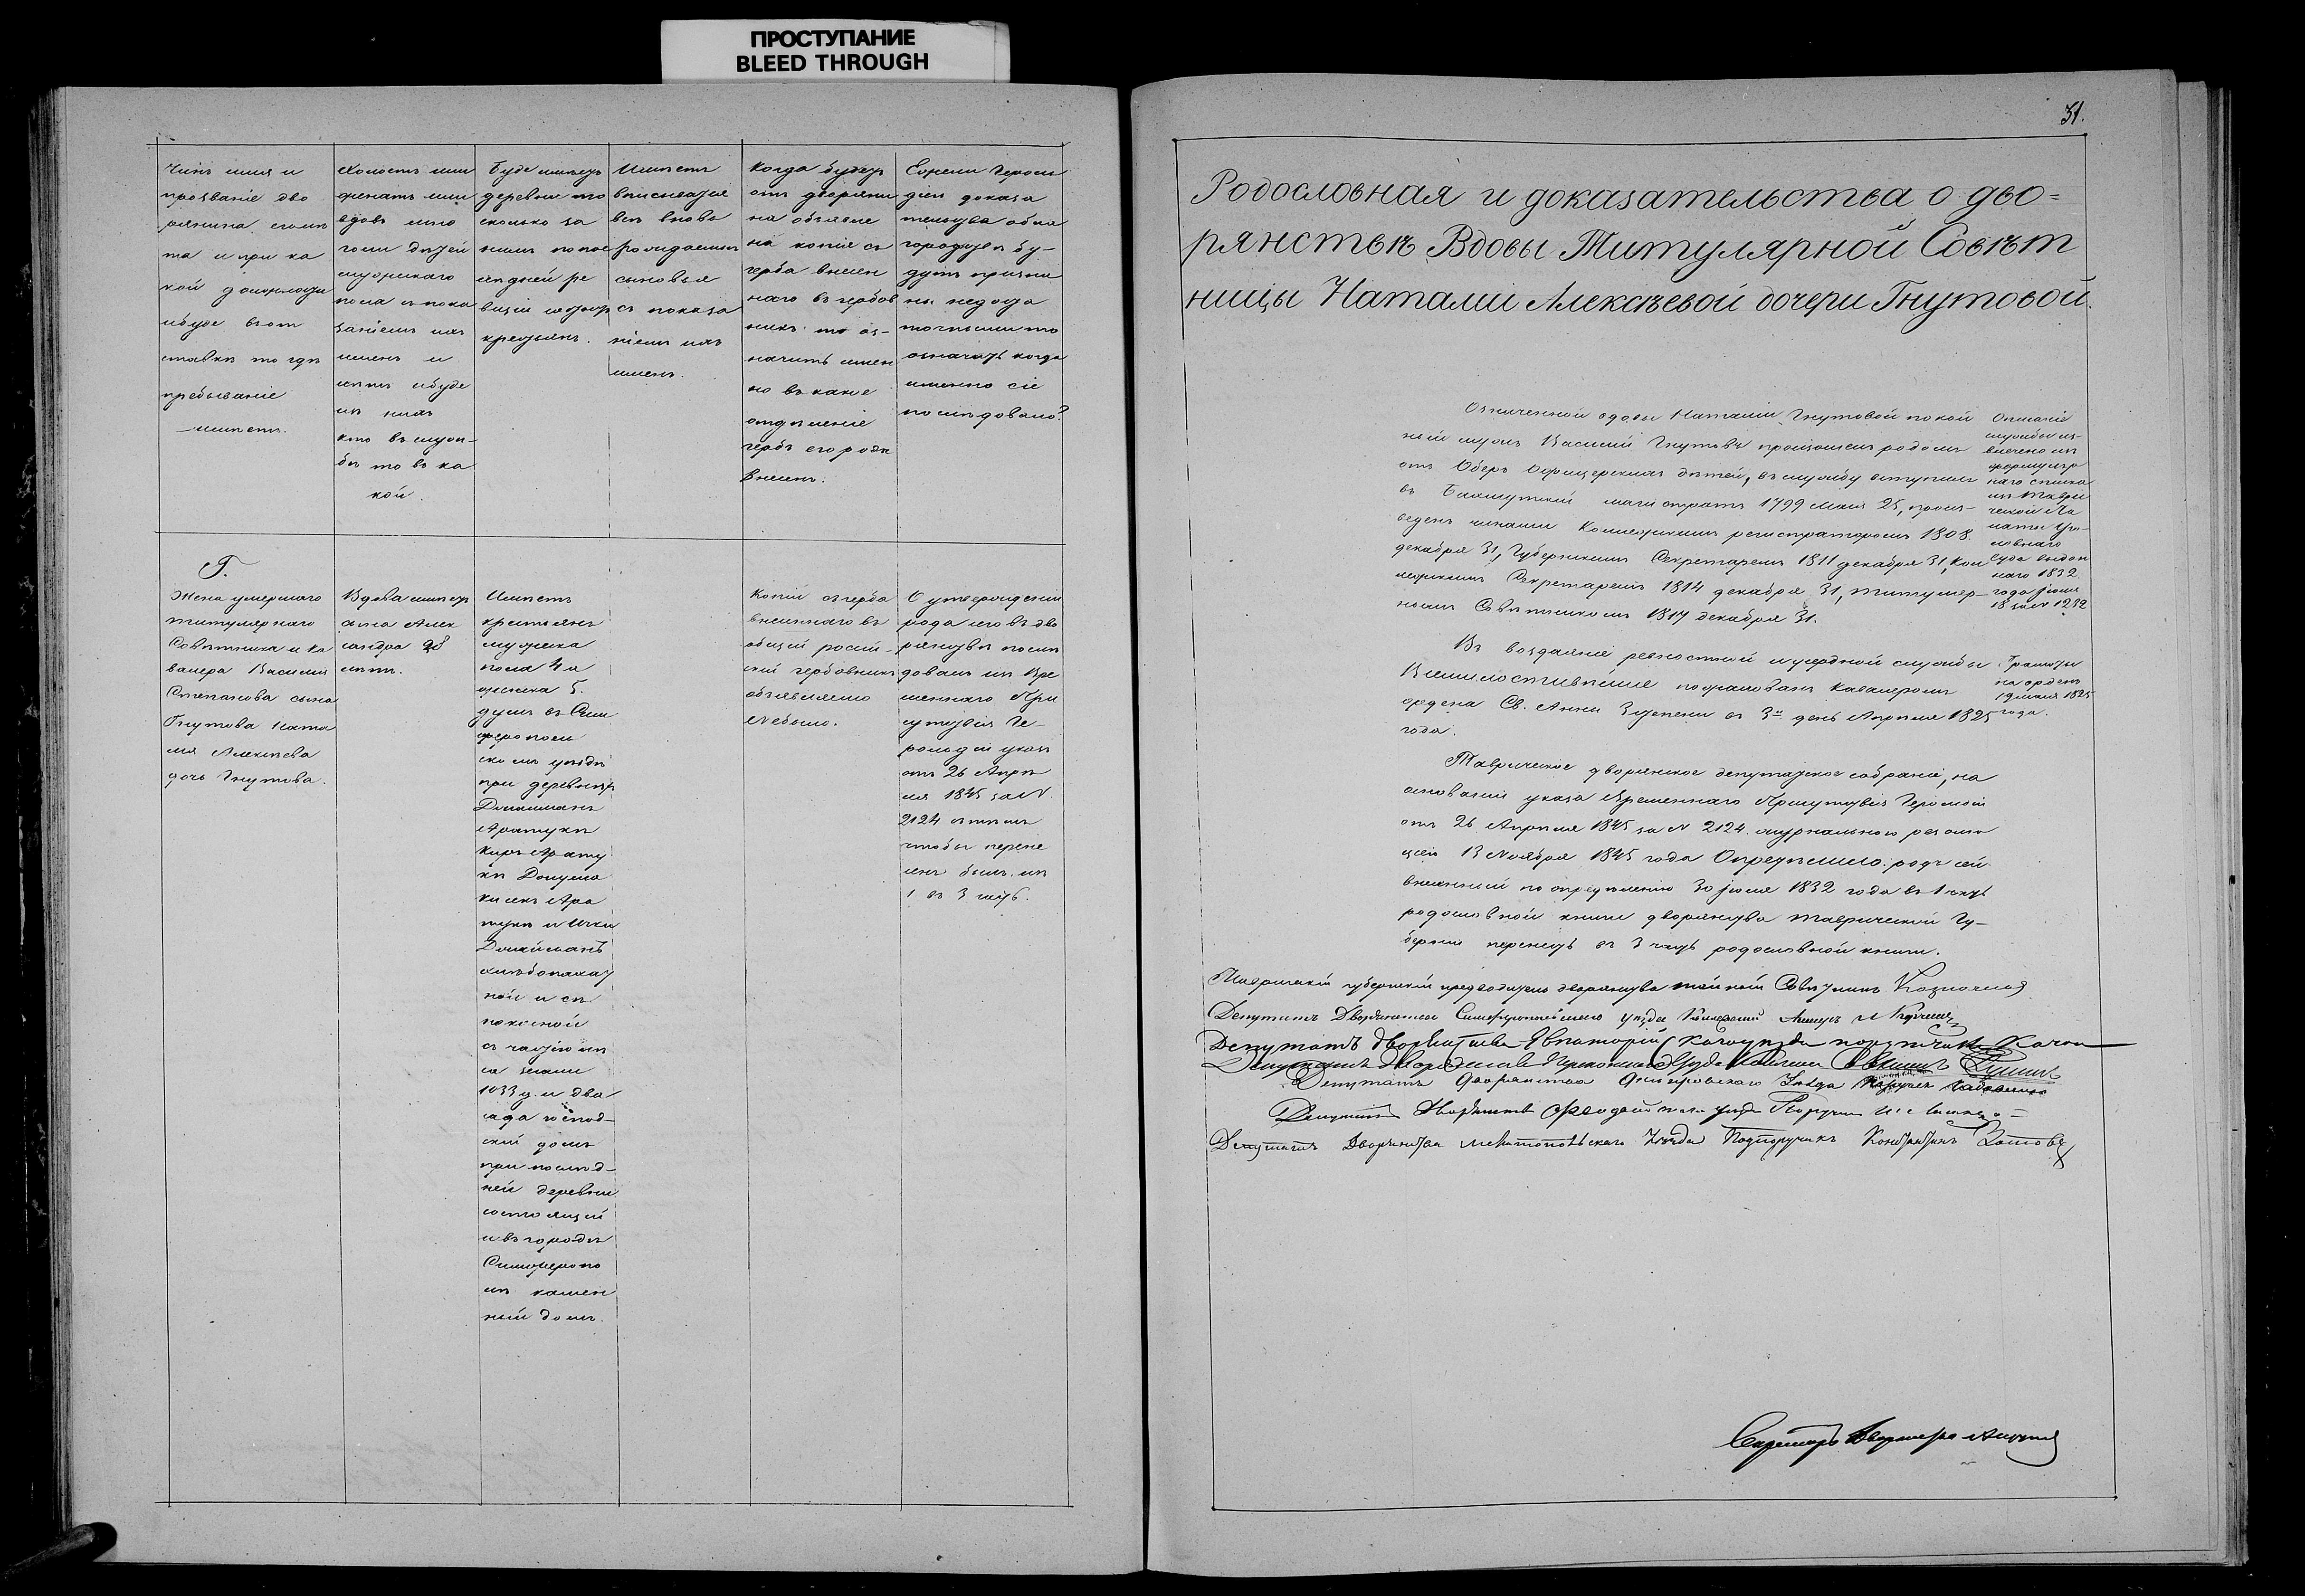 ПРОСТУПАНИЕ
BLEED THROUGH
Чинъ имя и
прозваніе дво
рянина сколь
та и при ка
кой должности
и буде въ от
ставкѣ то гдѣ
пребываніе
имѣетъ.
Холостъ или
женатъ или
вдовъ много
дѣтей
мужескаго
пола съ пока
заніемъ ихъ
именъ и
лѣтъ и буде
изъ нихъ
кто въ служ-
бѣ то въ ка
кой.
Буде имѣетъ
деревни то
сколько за
нимъ по пос
лѣдней ре
визіи мужес
крестьянъ.
Имѣетъ
ли
всѣ вновь
рождаемыя
сыновья
съ показа
ніемъ ихъ
именъ.
Когда будетъ
отъ дворяни
на объявле
на копія съ
герба внесен
наго въ гербов
никъ то оз-
начить имен
но въ какое
отдѣленіе
гербъ его рода
внесенъ.
Ежели Герол
діи доказа
тельства обна
бу-
дутъ признa
ны недоста
точными то
означать когда
именно сіе
послѣдовало?
Г.
Жена умершаго
титулярнаго
Совѣтника и Ка
валера Василія
Степанова сына
Гнутова Ната
лія Алексѣева
дочь Гнутова.
Вдова имѣетъ
сына Алек
сандра 28
лѣтъ.
Имѣетъ
крестьянъ
мужеска
пола 4 и
женска 5.
душъ въ Сим
ферополь
скомъ уѣздѣ
при деревняхъ
Аратукъ
Аратукъ и Ички
хлѣбопахат
ной и сѣ
нокосной
съ частію лѣ
са земли
1033 д. и два
сада господ-
скій домъ
при послѣд-
ней деревни
состоящій
и въ городѣ
Симферопо
лѣ камен
ный домъ.
Копіи съ герба
внесеннаго въ
общій россій-
скій гербовникъ
объявлено
не было.
О утвержденіи
рода его въ дво
рянствѣ послѣ
довалъ изъ Вре
меннаго При
сутствія Ге-
рольдіи указъ
отъ 26 Апрѣ
ля 1845 за N
2124 съ тѣмъ
чтобы перене
сенъ былъ изъ
1 въ 3 часть.
31.
Родословная и доказательства о дво=
рянствѣ Вдовы Титулярной Совѣт
ницы Наталіи Алексѣевой дочери Гнутовой.
Означенной вдовы Наталіи Гнутовой покой
ный мужъ Василій Гнутовъ происшелъ родомъ
отъ Оберъ Офицерскихъ дѣтей, въ службу вступилъ
въ Бахмутскій магистратъ 1799 Мая 25, произ-
веденъ чинами Коллежскимъ регистраторомъ 1808.
декабря 31, Губернскимъ Секретаремъ 1811 декабря 31, Кол
лежскимъ Секретаремъ 1814 декабря 31, Титуляр-
нымъ Совѣтникомъ 1817 декабря 31.
Описаніе
службы из-
влечено изъ
формуляр
наго списка
изъ Таври
ческой Па
латы Уго-
ловнаго
Суда выдан
наго 1832
года Іюля
18 за N 1232
Въ воздаяніе ревностной и усердной службы
Всемилостивѣйше пожалованъ Кавалеромъ
ордена Св. Анны 3 степени въ 3й день Апрѣля 1825
года.
Грамоты
на орденъ
1825
года.
Таврическое дворянское депутатское собраніе, на
основаніи указа Временнаго Присутствія Герольдіи
отъ 26 Апрѣля 1845 за N 2124. журнальною резолю
ціею 13 Ноября 1845 года Опредѣлило: родъ сей
внесенный по опредѣленію 30 Іюля 1832 года въ 1 часть
родословной книги дворянства Таврической Гу-
берніи перенесть въ 3 часть родословной книги.
Таврическій губернскій предводитель дворянства тайный Совѣтникъ Казначеев
Депутатъ Дворянства Симферопольскаго уѣзда
Депутатъ дворянства Евпаторійскаго уѣзда поручикъ Качо
Депутатъ дворянства Перекопскаго Уѣзда
Депутатъ Дворянства Днепровскаго Уѣзда
Депутатъ Дворянства Феодосійскаго уезда Поруч
Депутатъ Дворянства Мелитопольскаго Уѣзда Подпоручикъ Константинъ
Секретарь Дворянства